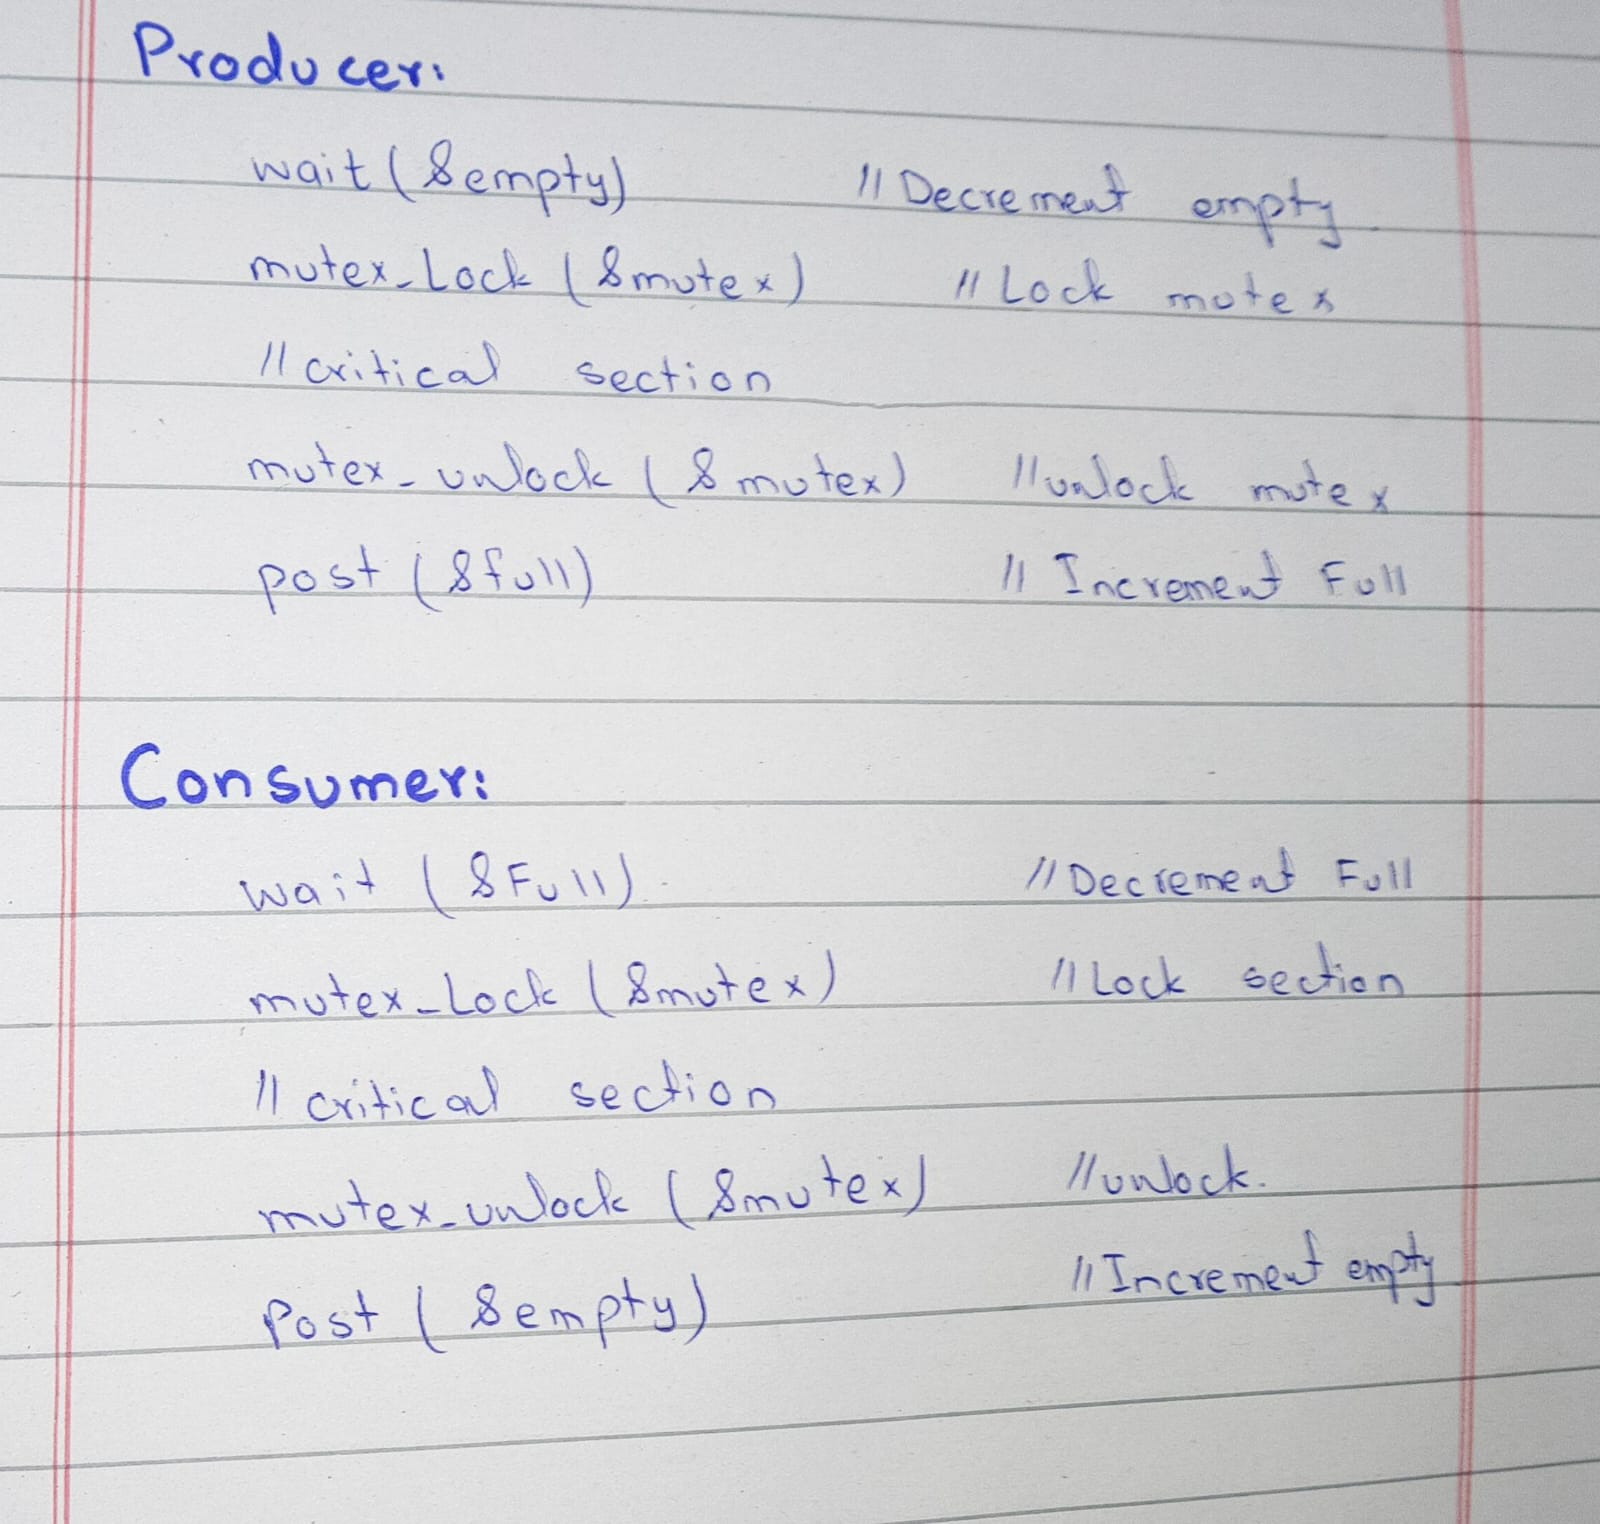 Producer:
wait (&empty) // Decrement empty
mutex_Lock (&mutex) // Lock mutex
// critical section
mutex_unlock (&mutex) // unlock mutex
post (&full) // Increment Full
Consumer:
wait (&Full). // Decrement Full
mutex_Lock (&mutex) // Lock section
// critical section
mutex_unlock (&mutex) // unlock.
Post (&empty) // Increment empty